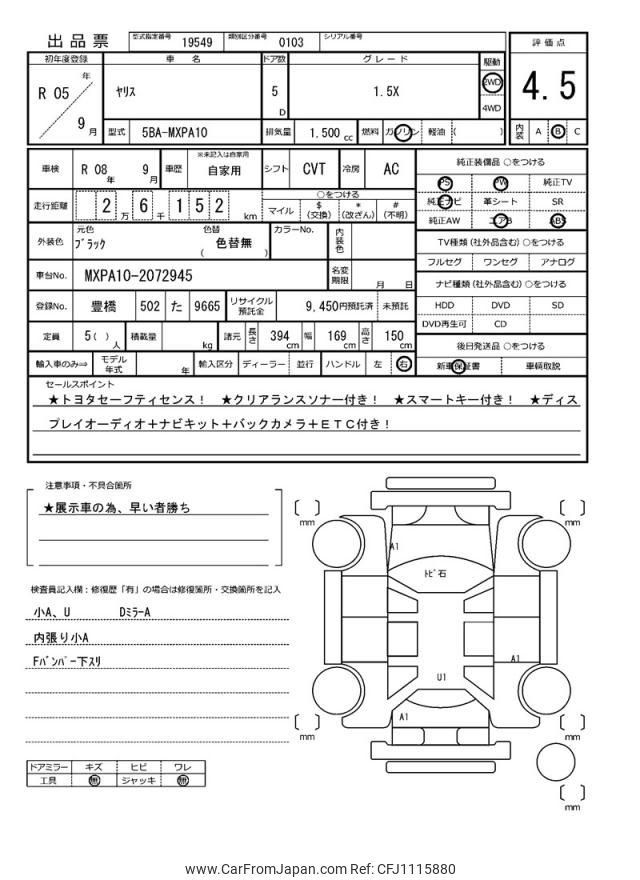 出品票
型式指定番号 19549 類別区分番号 0103 シリアル番号
初年度登録 車 名 ドア数 グレード 駆動 評価点
R 05 年 9 月
ヤリス 5 D 1.5X 2WD 4WD
4.5
型式 5BA-MXPA10 排気量 1.500 cc 燃料 ガソリン 軽油 ( )
内装 A B C
車検 R 08 年 9 月 車歴 ※未記入は自家用 自家用 シフト CVT 冷房 AC
走行距離 2 万 6 千 1 5 2 km
○をつける
マイル $ (交換) * (改ざん) # (不明)
外装色 元色 ブラック 色替 ( 色替無 ) カラーNo. 内装色
車台No. MXPA10-2072945 名変期限 月 日
登録No. 豊橋 502 た 9665 リサイクル預託金 9,450円預託済 未預託
定員 5( ) 人 積載量 kg 諸元 長さ 394 cm 幅 169 cm 高さ 150 cm
輸入車のみ⇒ モデル年式 年 輸入区分 ディーラー 並行 ハンドル 左 右
純正装備品 ○をつける
PS PW 純正TV
純正ナビ 革シート SR
純正AW エアB ABS
TV種類 (社外品含む) ○をつける
フルセグ ワンセグ アナログ
ナビ種類 (社外品含む) ○をつける
HDD DVD SD
DVD再生可 CD
後日発送品 ○をつける
新車保証書 車輌取説
セールスポイント
★トヨタセーフティセンス！ ★クリアランスソナー付き！ ★スマートキー付き！ ★ディス
プレイオーディオ＋ナビキット＋バックカメラ＋ＥＴＣ付き！
注意事項・不具合箇所
★展示車の為、早い者勝ち
検査員記入欄：修復歴「有」の場合は修復箇所・交換箇所を記入
小A、U DﾐﾗｰA
内張り小A
Fﾊﾞﾝﾊﾟｰ下ｽﾘ
ドアミラー キズ ヒビ ワレ
工具 無 ジャッキ 無
mm
mm
A1
ﾄﾋﾞ石
A1
U1
A1
mm
mm
mm
www.CarFromJapan.com Ref: CFJ1115880